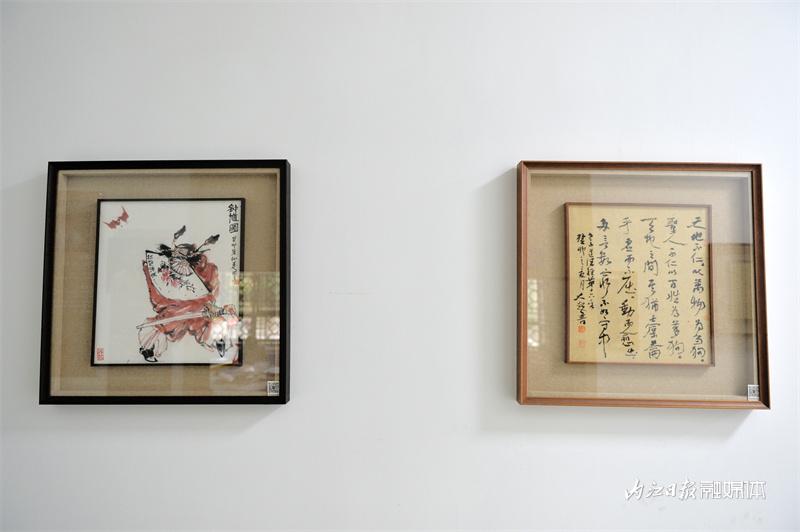 鍾馗圖
天地不仁。以萬物为芻狗。
聖人不仁以百姓为芻狗。
天地之間其猶橐籥
乎虚而不屈。動而愈出
多言數窮不如守中
癸卯之夏月
内江日报融媒体